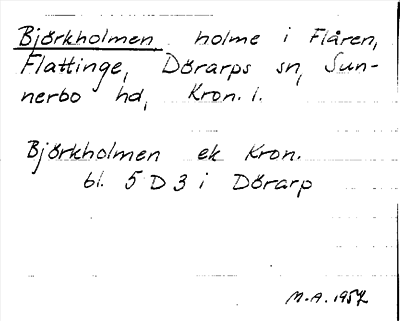 Björkholmen holme i Flåren,
Flattinge, Dörarps sn, Sun-
nerbo hd, Kron. l.
Björkholmen ek Kron.
bl. 5 D 3 i Dörarp
M.A. 1957